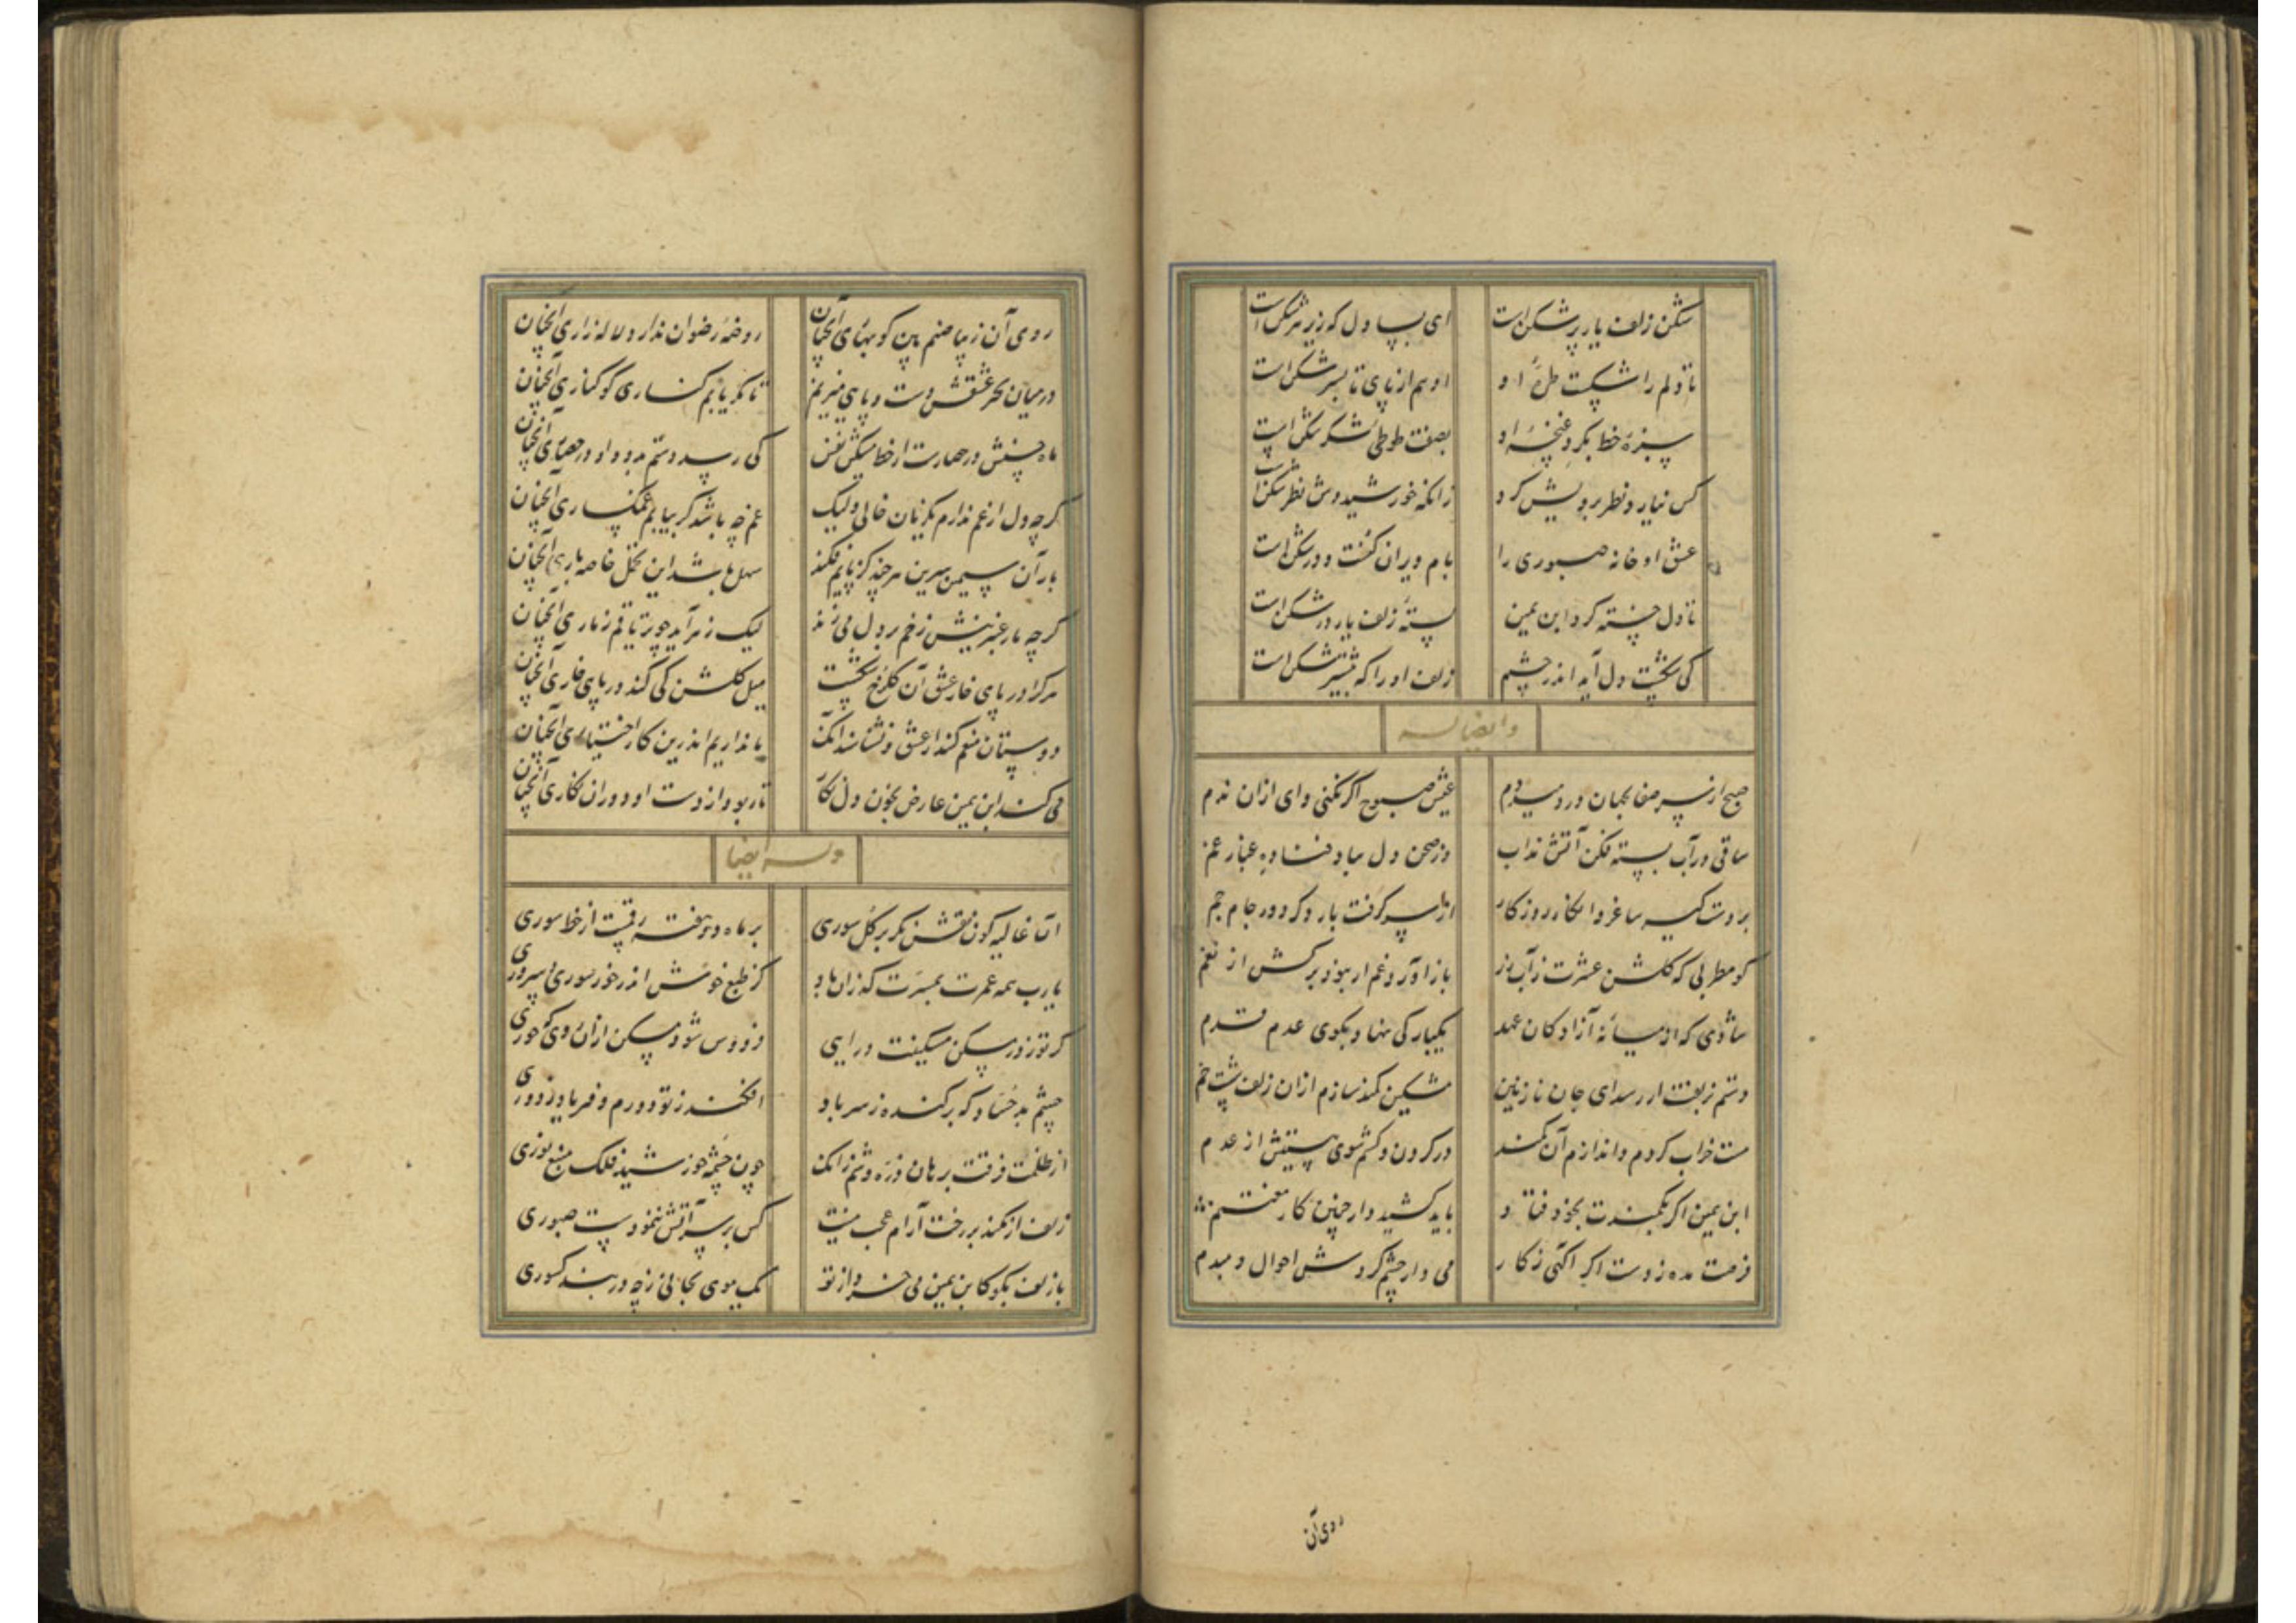 شکن زلف یار پر شکن است ای بسا دل که زیر هر شکن است
تا دلم را شکست طرهٔ او او هم از پای تا بسر شکن است
سبزهٔ خط بکرد غنچهٔ او بصفت طوطی شکر شکن است
کس نیارد نظر برویش کرد زانکه خورشیدوش نظر شکن است
عشق او خانه صبوری را بام ویران کنت و در شکن است
تا دل خسته کرد ابن یمین بستهٔ زلف یار در شکن است
کی شکست دل آید اندر چشم زلف او را که بیشتر شکن است
وایضا له
صبح از سر صفا بجهان در دمید دم عیش صبوح اگر نکنی وای ازان ندم
ساقی در آب بسته فکن آتش مذاب وز صحن دل بباد فنا ده غبار غم
بر دست گیر ساغر و انکار روزگار از سر گرفت بار دگر دور جام جم
کو مطربی که گلشن عشرت ز آب رز باز آورد غم ار بود برکش از نغم
شادی که از میانهٔ آزادگان عهد یکبارگی نهاد بکوی عدم قدم
دستم بزلفت ار رسد ای جان نازنین مشکین کمند سازم ازان زلف پشت خم
مست خراب گردم و اندازم آن کمند در گردن و کشم سوی هستیش از عدم
ابن یمین اگر بکمندت بخود فتاد باید کشید وار چنین کار مغتنم
فرصت مده ز دست اگر آگهی ز کار می دار چشم گردش احوال دمبدم
روی آن
روی آن زیبا صنم بین کو بهای آنچنان روضهٔ رضوان ندارد لاله زاری آنچنان
در میان بحر عشقش دست و پایی میزنم تا مگر یابم کناری کو کناری آنچنان
ماه چینش در حصارست از خط مشکین نفس کی رسد دستم بدو و او در حصاری آنچنان
گرچه دل از غم ندارم یکزمان خالی ولیک غم چه باشد گر بیابم غمگساری آنچنان
بار آن سیمین سرین هر چند کز پایم فکند سهل باشد این تحمل خاصه باری آنچنان
گرچه مار عنبرینش زخم بر دل می زند لیک زهر آید چو تریاقم ز ماری آنچنان
هرکرا در پای خار عشق آن گلرخ شکست میل گلشن کی کند در پای خاری آنچنان
دوستان منعم کنند از عشق و نشناسند آنک ما نداریم اندرین کار اختیاری آنچنان
می کند ابن یمین عارض بخون دل نگار تا ربود از دست او دوران نگاری آنچنان
وله ایضا
آن غالیه گون نقش نگر بر گل سوری بر ماه دو هفته رقمیست از خط سوری
یارب همه عمرت بمسرت گذران باد کز طبع خوش اندر خور سوری و سروری
گر تو ز در مسکن مسکینت درایی فردوس شود مسکن ازان روی که حوری
چشم بد حساد که برکنده ز سر باد افکند ز تو دورم و فریاد ز دوری
از ظلمت فرقت برهان ذره وشم زانک چون چشمهٔ خورشید فلک منبع نوری
زلف از نکند بر رخت آرام عجب نیست کس بر سر آتش ننمودست صبوری
با زلف بگو کابن یمین می خرد از تو یک موی بجانی ز چه در بند کسوری